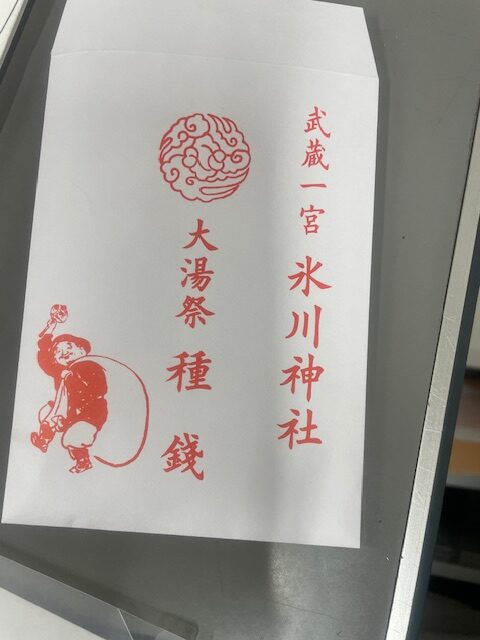 武蔵一宮 氷川神社
大湯祭 種錢